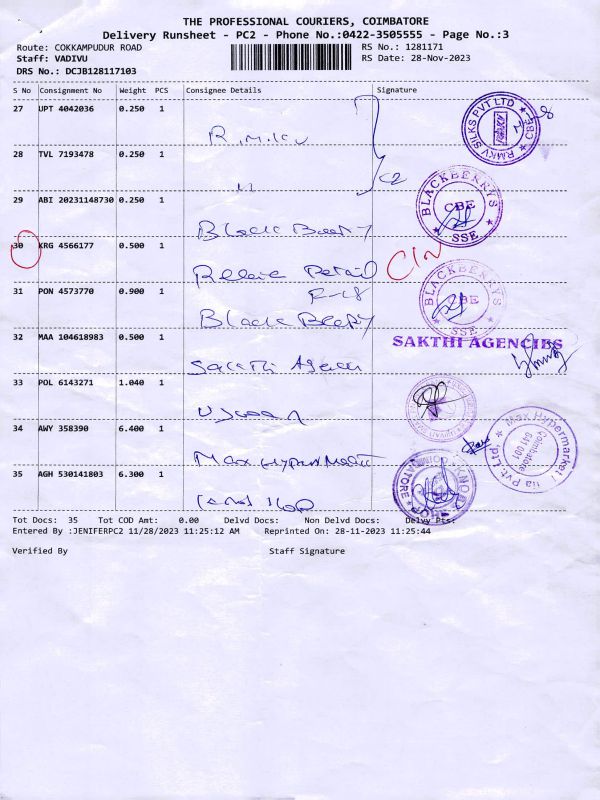 THE PROFESSIONAL COURIERS, COIMBATORE
Delivery Runsheet - PC2 - Phone No.:0422-3505555 - Page No.:3
Route: COKKAMPUDUR ROAD
RS No.: 1281171
Staff: VADIVU
RS Date: 28-Nov-2023
DRS No.: DCJB128117103
S No Consignment No Weight PCS Consignee Details Signature
27 UPT 4042036 0.250 1
RMKV SILKS PVT LTD CBE
28 TVL 7193478 0.250 1
29 ABI 20231148730 0.250 1
Black Beery
BLACKBERRYS CBE SSE
30 KRG 4566177 0.500 1
Retail
31 PON 4573770 0.900 1
Black Beery
BLACKBERRYS CBE SSE
32 MAA 104618983 0.500 1
Sakthi
SAKTHI AGENCIES
33 POL 6143271 1.040 1
34 AWY 358390 6.400 1
Max Hyper
Max Hypermarket Pvt. Ltd
Coimbatore
641 001
35 AGH 530141803 6.300 1
Tot Docs: 35 Tot COD Amt: 0.00 Delvd Docs: Non Delvd Docs: Delvy Pts:
Entered By :JENIFERPC2 11/28/2023 11:25:12 AM Reprinted On: 28-11-2023 11:25:44
Verified By Staff Signature